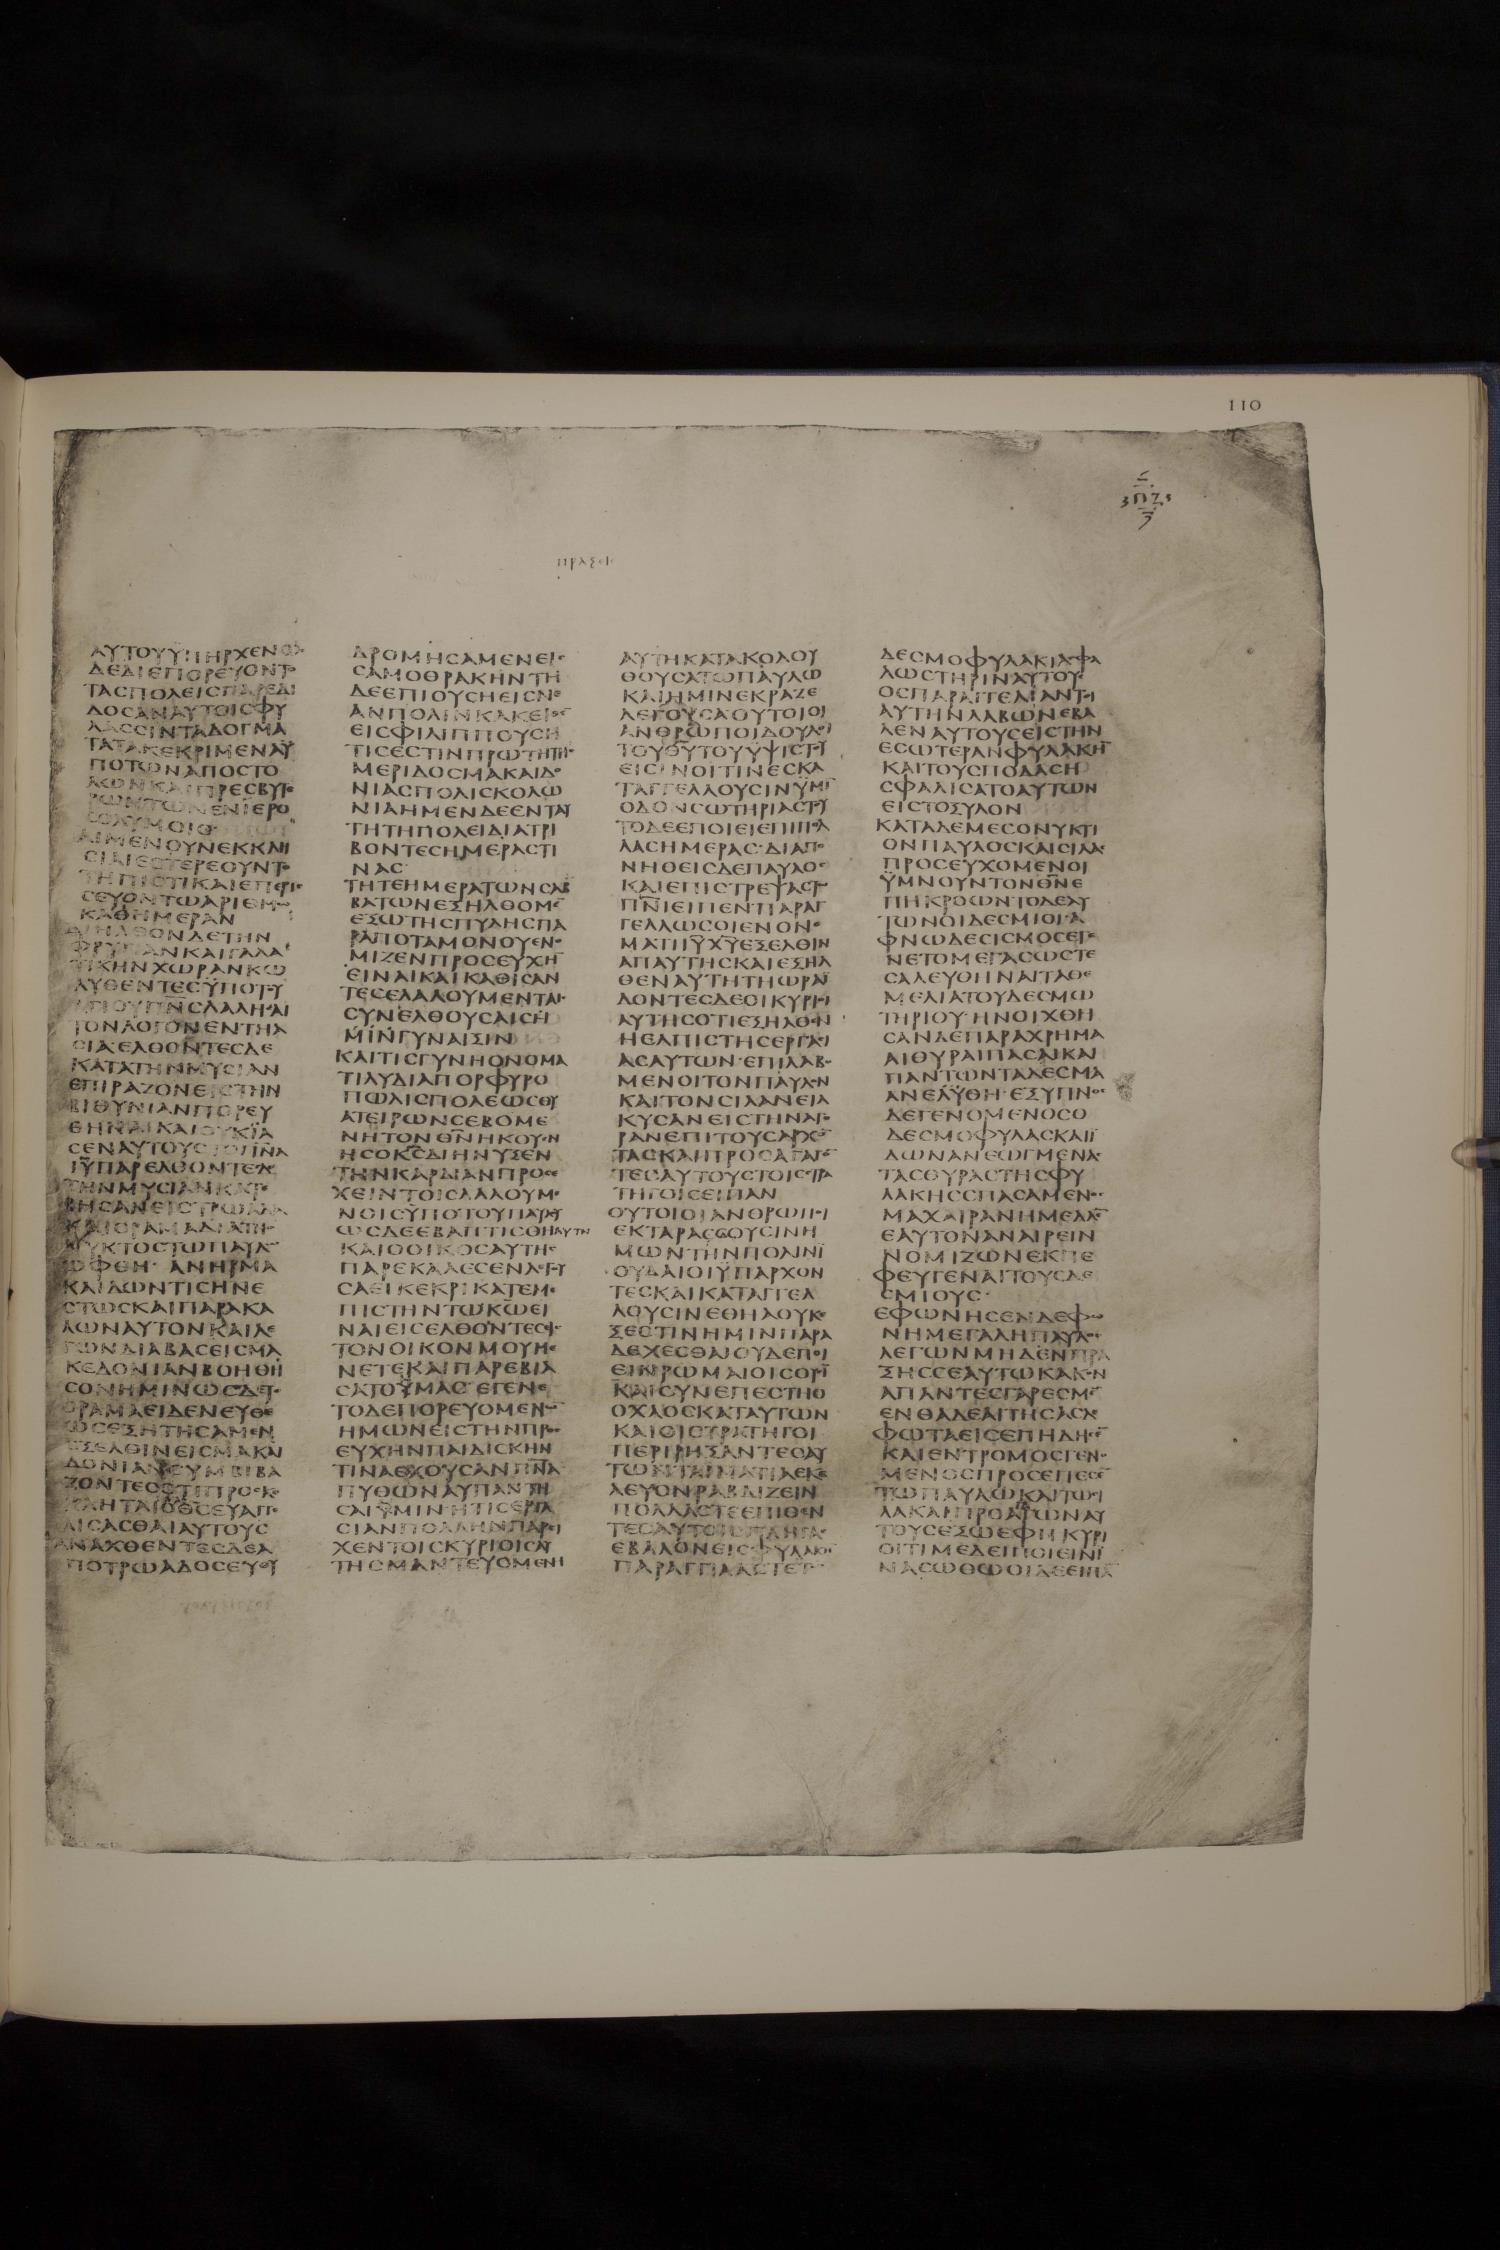 110
ΠΖ
ΠΡΑΞΕΙϹ
ΑΥΤΟΥΫΠΗΡΧΕΝ
ΔΕΔΙΕΠΟΡΕΥΟΝΤΟ
ΤΑϹΠΟΛΕΙϹΠΑΡΕΔΙ
ΔΟϹΑΝΑΥΤΟΙϹΦΥ
ΛΑϹϹΙΝΤΑΔΟΓΜΑ
ΤΑΤΑΚΕΚΡΙΜΕΝΑΫ
ΠΟΤΩΝΑΠΟϹΤΟ
ΛΩΝΚΑΙΠΡΕϹΒΥΤΕ
ΡΩΝΤΩΝΕΝΪΕΡΟ
ϹΟΛΥΜΟΙϹ
ΑΙΜΕΝΟΥΝΕΚΚΛΗ
ϹΙΑΙΕϹΤΕΡΕΟΥΝΤΟ
ΤΗΠΙϹΤΙΚΑΙΕΠΕΡΙϹ
ϹΕΥΟΝΤΩΑΡΙΘΜΩ
ΚΑΘΗΜΕΡΑΝ
ΔΙΗΛΘΟΝΔΕΤΗΝ
ΦΡΥΓΙΑΝΚΑΙΓΑΛΑ
ΤΙΚΗΝΧΩΡΑΝΚΩ
ΛΥΘΕΝΤΕϹΫΠΟΤΟΥ
ΑΓΙΟΥΠΝϹΛΑΛΗϹΑΙ
ΤΟΝΛΟΓΟΝΕΝΤΗΑ
ϹΙΑΕΛΘΟΝΤΕϹΔΕ
ΚΑΤΑΤΗΝΜΥϹΙΑΝ
ΕΠΙΡΑΖΟΝΕΙϹΤΗΝ
ΒΙΘΥΝΙΑΝΠΟΡΕΥ
ΘΗΝΑΙΚΑΙΟΥΚΪΑ
ϹΕΝΑΥΤΟΥϹΤΟΠΝΑ
ΙΫΠΑΡΕΛΘΟΝΤΕϹΔΕ
ΤΗΝΜΥϹΙΑΝΚΑΤΕ
ΒΗϹΑΝΕΙϹΤΡΩΑΔΑ
ΚΑΙΟΡΑΜΑΔΙΑΤΗϹ
ΝΥΚΤΟϹΤΩΠΑΥΛΩ
ΩΦΘΗ· ΑΝΗΡΜΑ
ΚΑΙΔΩΝΤΙϹΗΝΕ
ϹΤΩϹΚΑΙΠΑΡΑΚΑ
ΛΩΝΑΥΤΟΝΚΑΙΛΕ
ΓΩΝΔΙΑΒΑϹΕΙϹΜΑ
ΚΕΔΟΝΙΑΝΒΟΗΘΗ
ϹΟΝΗΜΙΝΩϹΔΕΤΟ
ΟΡΑΜΑΕΙΔΕΝΕΥΘΕ
ΩϹΕΖΗΤΗϹΑΜΕΝ
ΕΞΕΛΘΙΝΕΙϹΜΑΚΑΙ
ΔΟΝΙΑΝϹΥΜΒΙΒΑ
ΖΟΝΤΕϹΟΤΙΠΡΟϹΚΕ
ΚΛΗΤΑΙΟΘϹΕΥΑΓΓΕ
ΛΙϹΑϹΘΑΙΑΥΤΟΥϹ
ΑΝΑΧΘΕΝΤΕϹΔΕΑ
ΠΟΤΡΩΑΔΟϹΕΥΘΥ
ΔΡΟΜΗϹΑΜΕΝΕΙϹ
ϹΑΜΟΘΡΑΚΗΝΤΗ
ΔΕΕΠΙΟΥϹΗΕΙϹΝΕ
ΑΝΠΟΛΙΝΚΑΚΕΙΘΕ
ΕΙϹΦΙΛΙΠΠΟΥϹΗ
ΤΙϹΕϹΤΙΝΠΡΩΤΗΤΗϹ
ΜΕΡΙΔΟϹΜΑΚΑΙΔΟ
ΝΙΑϹΠΟΛΙϹΚΟΛΩ
ΝΙΑΗΜΕΝΔΕΕΝΤΑΥ
ΤΗΤΗΠΟΛΕΙΔΙΑΤΡΙ
ΒΟΝΤΕϹΗΜΕΡΑϹΤΙ
ΝΑϹ
ΤΗΤΕΗΜΕΡΑΤΩΝϹΑΒ
ΒΑΤΩΝΕΞΗΛΘΟΜΕ
ΕΞΩΤΗϹΠΥΛΗϹΠΑ
ΡΑΠΟΤΑΜΟΝΟΥΕΝΟ
ΜΙΖΕΝΠΡΟϹΕΥΧΗ
ΕΙΝΑΙΚΑΙΚΑΘΙϹΑΝ
ΤΕϹΕΛΑΛΟΥΜΕΝΤΑΙϹ
ϹΥΝΕΛΘΟΥϹΑΙϹΗ
ΜΙΝΓΥΝΑΙΞΙΝ
ΚΑΙΤΙϹΓΥΝΗΟΝΟΜΑ
ΤΙΛΥΔΙΑΠΟΡΦΥΡΟ
ΠΩΛΙϹΠΟΛΕΩϹΘΥ
ΑΤΕΙΡΩΝϹΕΒΟΜΕ
ΝΗΤΟΝΘΝΗΚΟΥΕΝ
ΗϹΟΚϹΔΙΗΝΥΞΕΝ
ΤΗΝΚΑΡΔΙΑΝΠΡΟϹΕ
ΧΕΙΝΤΟΙϹΛΑΛΟΥΜΕ
ΝΟΙϹΫΠΟΤΟΥΠΑΥΛΟΥ
ΩϹΔΕΕΒΑΠΤΙϹΘΗΑΥΤΗ
ΚΑΙΟΟΙΚΟϹΑΥΤΗϹ
ΠΑΡΕΚΑΛΕϹΕΝΛΕΓΟΥ
ϹΑΕΙΚΕΚΡΙΚΑΤΕΜΕ
ΠΙϹΤΗΝΤΩΚΩΕΙ
ΝΑΙΕΙϹΕΛΘΟΝΤΕϹΕΙϹ
ΤΟΝΟΙΚΟΝΜΟΥΜΕ
ΝΕΤΕΚΑΙΠΑΡΕΒΙΑ
ϹΑΤΟΫΜΑϹ ΕΓΕΝΕ
ΤΟΔΕΠΟΡΕΥΟΜΕΝΩ
ΗΜΩΝΕΙϹΤΗΝΠΡΟϹ
ΕΥΧΗΝΠΑΙΔΙϹΚΗΝ
ΤΙΝΑΕΧΟΥϹΑΝΠΝΑ
ΠΥΘΩΝΑΥΠΑΝΤΗ
ϹΑΙΫΜΙΝΗΤΙϹΕΡΓΑ
ϹΙΑΝΠΟΛΛΗΝΠΑΡΕΙ
ΧΕΝΤΟΙϹΚΥΡΙΟΙϹΑΥ
ΤΗϹΜΑΝΤΕΥΟΜΕΝΗ
ΑΥΤΗΚΑΤΑΚΟΛΟΥ
ΘΟΥϹΑΤΩΠΑΥΛΩ
ΚΑΙΗΜΙΝΕΚΡΑΖΕ
ΛΕΓΟΥϹΑΟΥΤΟΙΟΙ
ΑΝΘΡΩΠΟΙΔΟΥΛΟΙ
ΤΟΥΘΥΤΟΥΫΨΙϹΤΟΥ
ΕΙϹΙΝΟΙΤΙΝΕϹΚΑ
ΤΑΓΓΕΛΛΟΥϹΙΝΫΜΙ
ΟΔΟΝϹΩΤΗΡΙΑϹΤΟΥ
ΤΟΔΕΕΠΟΙΕΙΕΠΙΠΟΛ
ΛΑϹΗΜΕΡΑϹ·ΔΙΑΠΟ
ΝΗΘΕΙϹΔΕΠΑΥΛΟϹ
ΚΑΙΕΠΙϹΤΡΕΨΑϹΤΩ
ΠΝΙΕΙΠΕΝΠΑΡΑΓ
ΓΕΛΛΩϹΟΙΕΝΟΝΟ
ΜΑΤΙΙΫΧΫΕΞΕΛΘΙΝ
ΑΠΑΥΤΗϹΚΑΙΕΞΗΛ
ΘΕΝΑΥΤΗΤΗΩΡΑΪ
ΔΟΝΤΕϹΔΕΟΙΚΥΡΙΟΙ
ΑΥΤΗϹΟΤΙΕΞΗΛΘΕΝ
ΗΕΛΠΙϹΤΗϹΕΡΓΑϹΙ
ΑϹΑΥΤΩΝ·ΕΠΙΛΑΒΟ
ΜΕΝΟΙΤΟΝΠΑΥΛΟΝ
ΚΑΙΤΟΝϹΙΛΑΝΕΙΛ
ΚΥϹΑΝΕΙϹΤΗΝΑΓΟ
ΡΑΝΕΠΙΤΟΥϹΑΡΧΟ
ΤΑϹΚΑΙΠΡΟϹΑΓΑΓΟ
ΤΕϹΑΥΤΟΥϹΤΟΙϹϹΤΡΑ
ΤΗΓΟΙϹΕΙΠΑΝ
ΟΥΤΟΙΟΙΑΝΘΡΩΠΟΙ
ΕΚΤΑΡΑϹϹΟΥϹΙΝΗ
ΜΩΝΤΗΝΠΟΛΙΝΪ
ΟΥΔΑΙΟΙΫΠΑΡΧΟΝ
ΤΕϹΚΑΙΚΑΤΑΓΓΕΛ
ΛΟΥϹΙΝΕΘΗΑΟΥΚΕ
ΞΕϹΤΙΝΗΜΙΝΠΑΡΑ
ΔΕΧΕϹΘΑΙΟΥΔΕΠΟΙ
ΕΙΝΡΩΜΑΙΟΙϹΟΥϹΙ
ΚΑΙϹΥΝΕΠΕϹΤΗΟ
ΟΧΛΟϹΚΑΤΑΥΤΩΝ
ΚΑΙΟΙϹΤΡΑΤΗΓΟΙ
ΠΕΡΙΡΗΞΑΝΤΕϹΑΥ
ΤΩΝΤΑΪΜΑΤΙΑΕΚΕ
ΛΕΥΟΝΡΑΒΔΙΖΕΙΝ
ΠΟΛΛΑϹΤΕΕΠΙΘΕΝ
ΤΕϹΑΥΤΟΙϹΠΛΗΓΑϹ
ΕΒΑΛΟΝΕΙϹΦΥΛΑΚΗ
ΠΑΡΑΓΓΙΛΑϹΤΕΤΩ
ΔΕϹΜΟΦΥΛΑΚΙΑϹΦΑ
ΛΩϹΤΗΡΙΝΑΥΤΟΥϹ
ΟϹΠΑΡΑΓΓΕΛΙΑΝΤΟΙ
ΑΥΤΗΝΛΑΒΩΝΕΒΑ
ΛΕΝΑΥΤΟΥϹΕΙϹΤΗΝ
ΕϹΩΤΕΡΑΝΦΥΛΑΚΗ
ΚΑΙΤΟΥϹΠΟΔΑϹΗ
ϹΦΑΛΙϹΑΤΟΑΥΤΩΝ
ΕΙϹΤΟΞΥΛΟΝ
ΚΑΤΑΔΕΜΕϹΟΝΥΚΤΙ
ΟΝΠΑΥΛΟϹΚΑΙϹΙΛΑϹ
ΠΡΟϹΕΥΧΟΜΕΝΟΙ
ΫΜΝΟΥΝΤΟΝΘΝΕ
ΠΗΚΡΟΩΝΤΟΔΕΑΥ
ΤΩΝΟΙΔΕϹΜΙΟΙ·Α
ΦΝΩΔΕϹΙϹΜΟϹΕΓΕ
ΝΕΤΟΜΕΓΑϹΩϹΤΕ
ϹΑΛΕΥΘΗΝΑΙΤΑΘΕ
ΜΕΛΙΑΤΟΥΔΕϹΜΩ
ΤΗΡΙΟΥ·ΗΝΟΙΧΘΗ
ϹΑΝΔΕΠΑΡΑΧΡΗΜΑ
ΑΙΘΥΡΑΙΠΑϹΑΙΚΑΙ
ΠΑΝΤΩΝΤΑΔΕϹΜΑ
ΑΝΕΛΫΘΗ·ΕΞΥΠΝΟϹ
ΔΕΓΕΝΟΜΕΝΟϹΟ
ΔΕϹΜΟΦΥΛΑΞΚΑΙΪ
ΔΩΝΑΝΕΩΓΜΕΝΑϹ
ΤΑϹΘΥΡΑϹΤΗϹΦΥ
ΛΑΚΗϹϹΠΑϹΑΜΕΝΟϹ
ΜΑΧΑΙΡΑΝΗΜΕΛΛΕ
ΕΑΥΤΟΝΑΝΑΙΡΕΙΝ
ΝΟΜΙΖΩΝΕΚΠΕ
ΦΕΥΓΕΝΑΙΤΟΥϹΔΕ
ϹΜΙΟΥϹ·
ΕΦΩΝΗϹΕΝΔΕΦΩ
ΝΗΜΕΓΑΛΗΠΑΥΛΟϹ
ΛΕΓΩΝΜΗΔΕΝΠΡΑ
ΞΗϹϹΕΑΥΤΩΚΑΚΟΝ
ΑΠΑΝΤΕϹΓΑΡΕϹΜΕ
ΕΝΘΑΔΕΑΙΤΗϹΑϹΔΕ
ΦΩΤΑΕΙϹΕΠΗΔΗϹΕ
ΚΑΙΕΝΤΡΟΜΟϹΓΕΝΟ
ΜΕΝΟϹΠΡΟϹΕΠΕϹΕ
ΤΩΠΑΥΛΩΚΑΙΤΩϹΙ
ΛΑΚΑΙΠΡΟΑΓΩΝΑΥ
ΤΟΥϹΕΞΩΕΦΗ ΚΥΡΙ
ΟΙΤΙΜΕΔΕΙΠΟΙΕΙΝΪ
ΝΑϹΩΘΩΟΙΔΕΕΙΠΑ